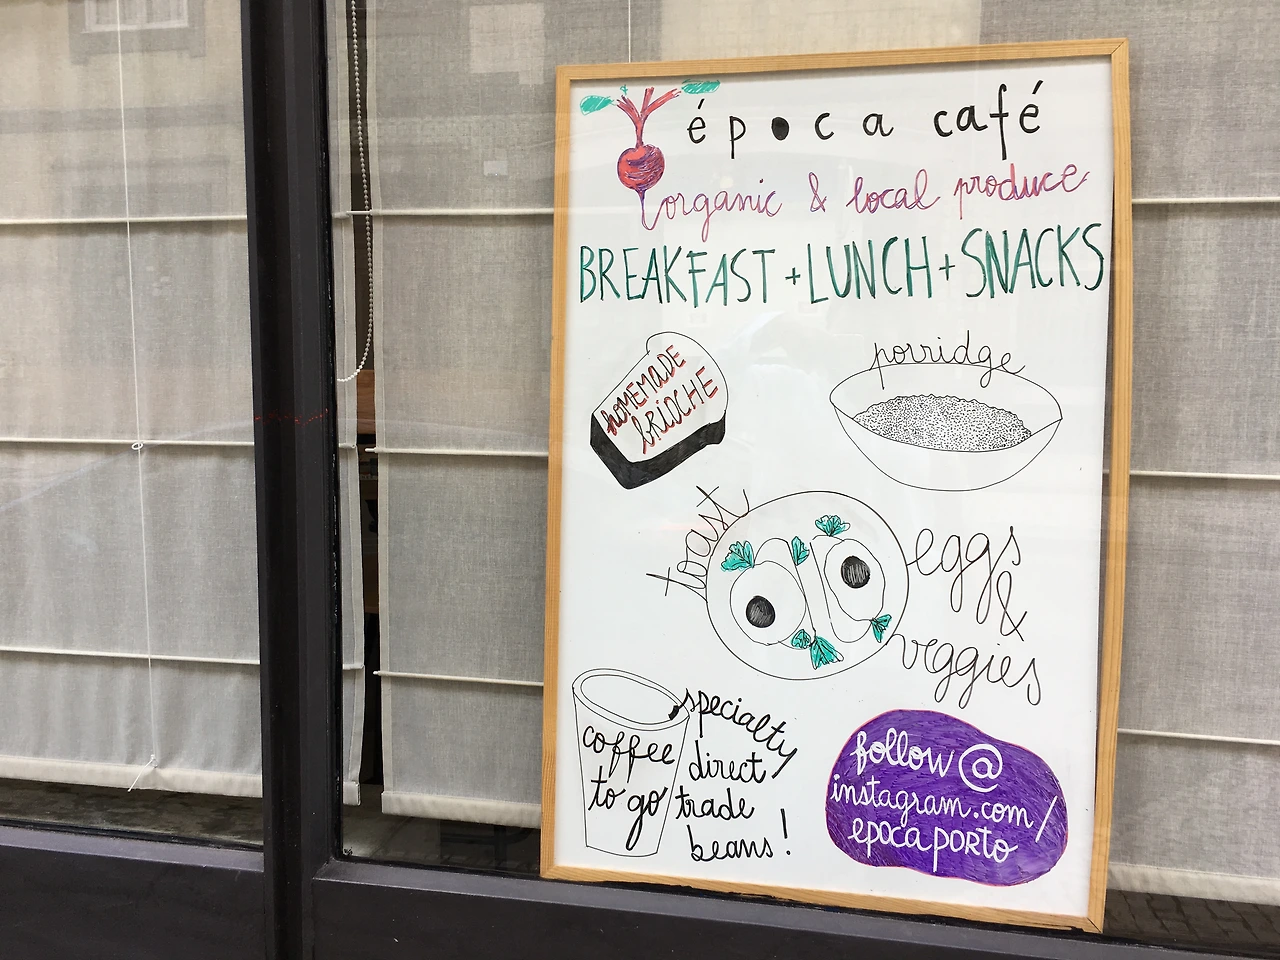 época café
organic & local produce
BREAKFAST + LUNCH + SNACKS
hOMEMADE
bRiOCHE
porridge
toast
eggs
&
veggies
coffee
to go
specialty
direct
trade
beans!
follow @
instagram.com/
epocaporto